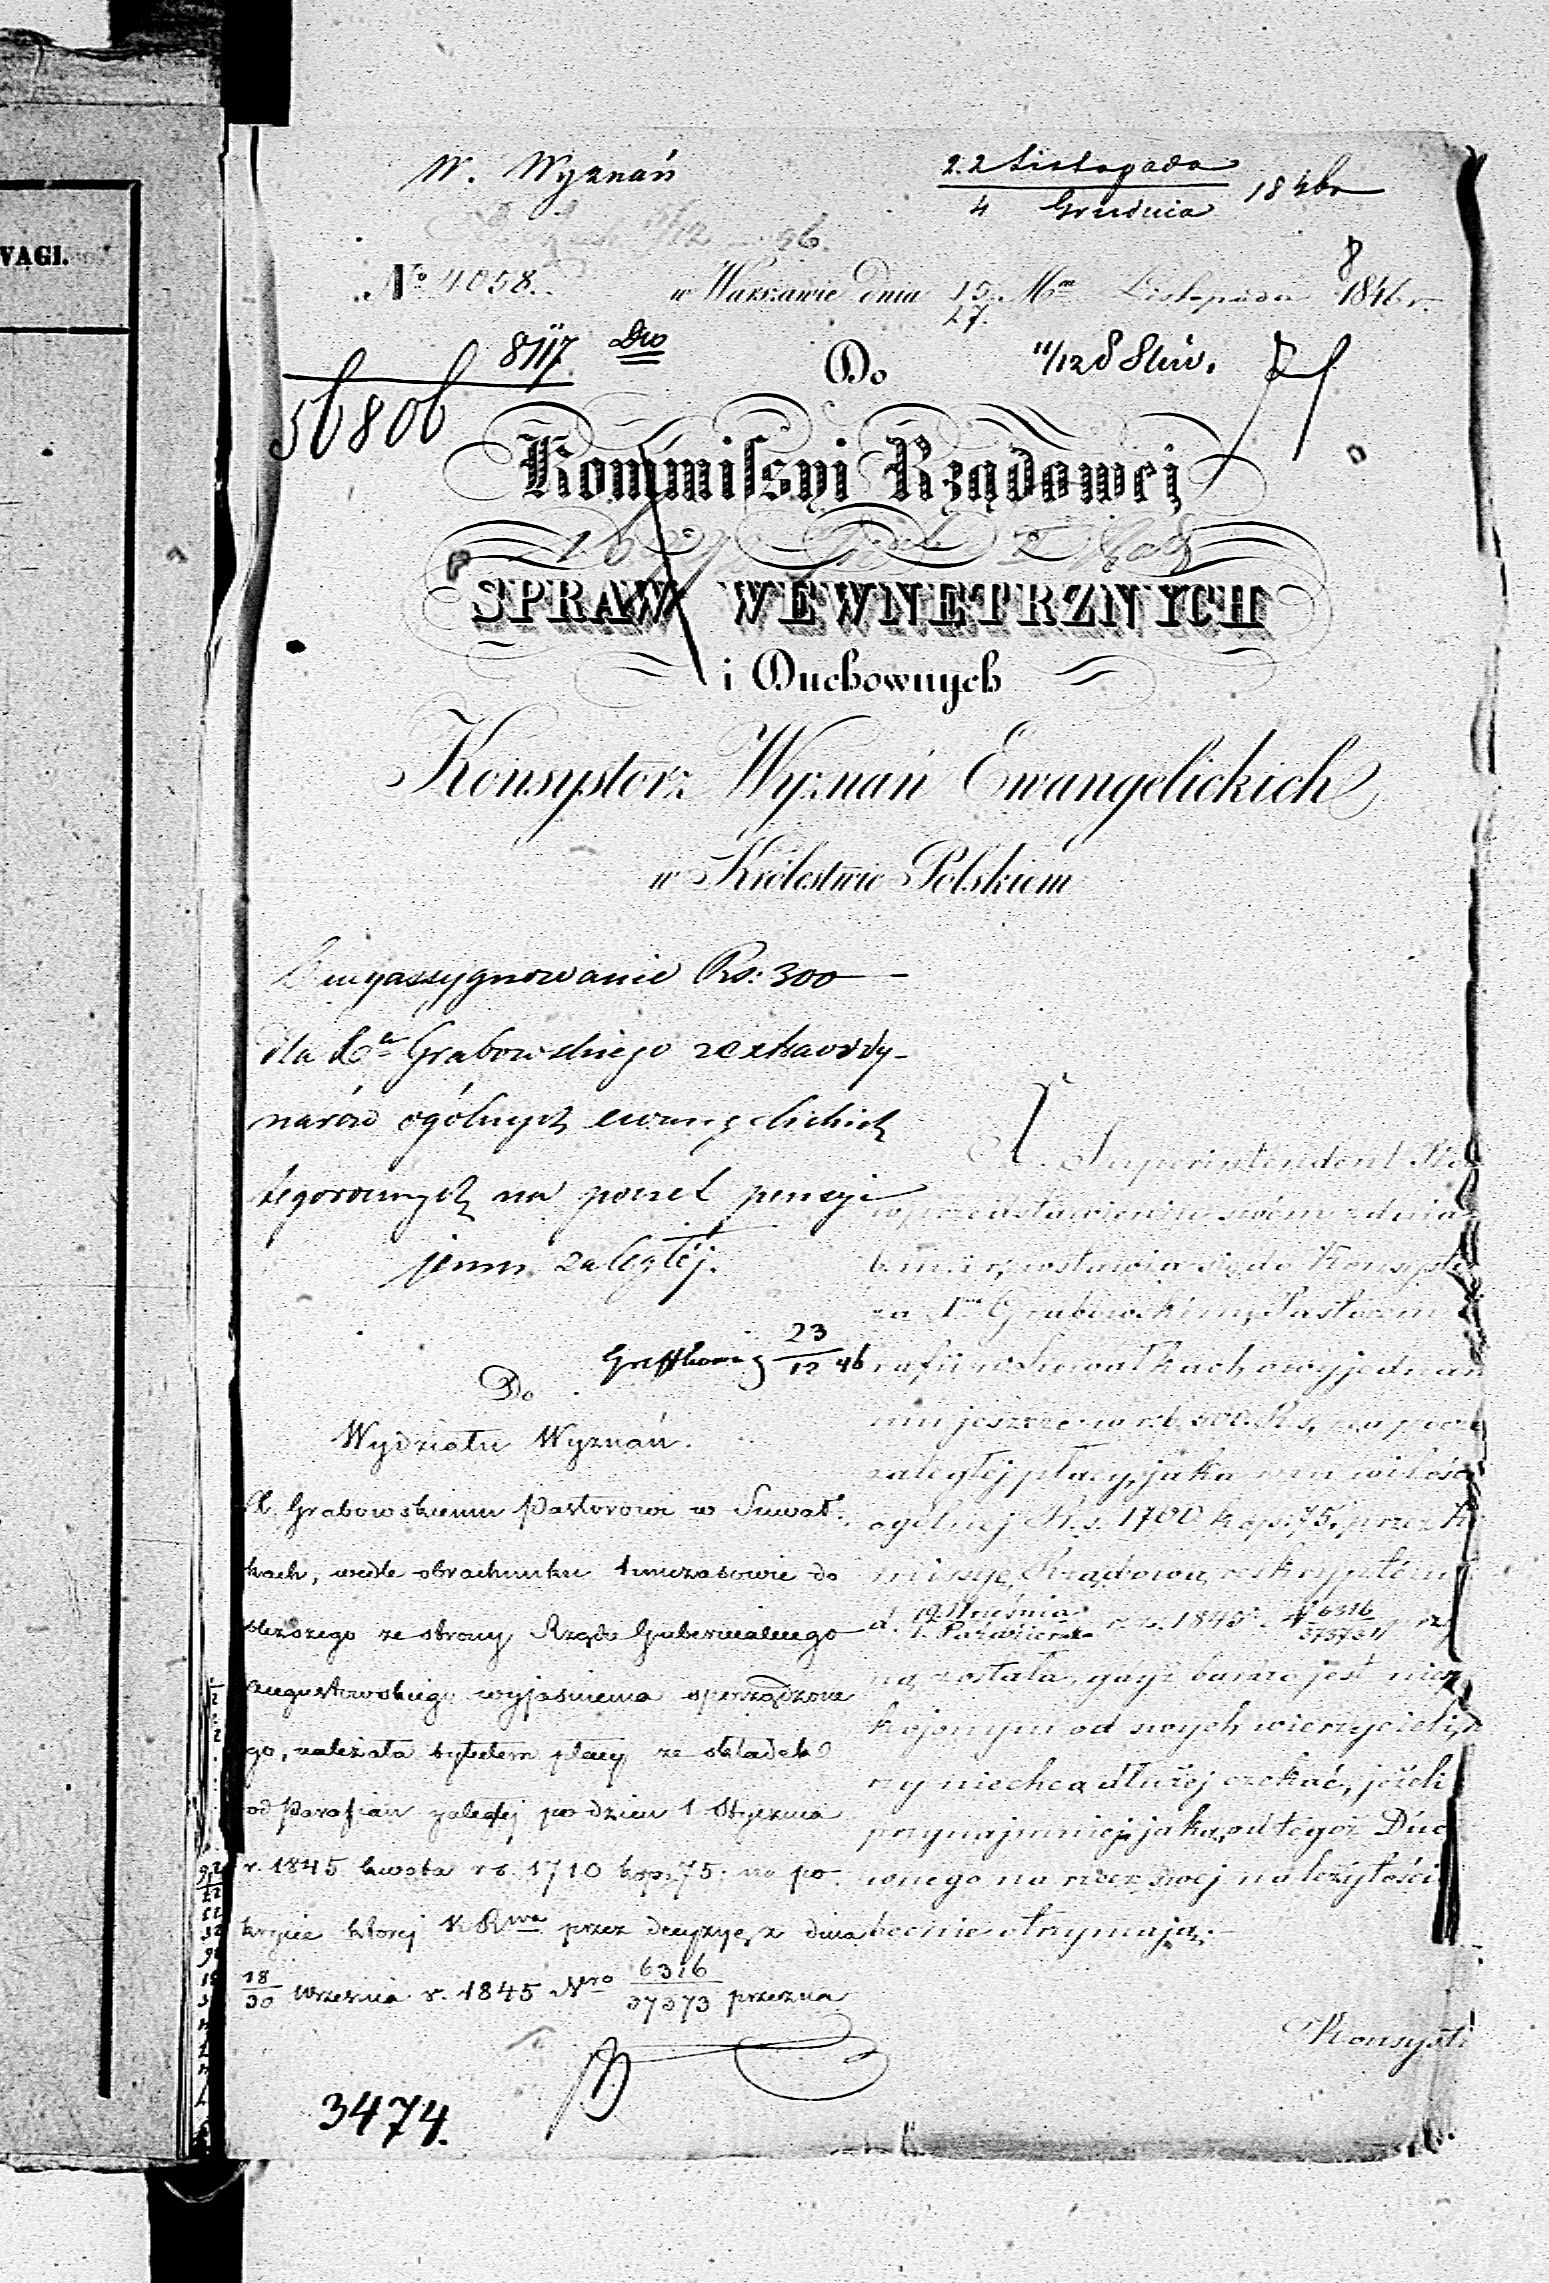 WAGI.
W. Wyznań
22 Listopada
4 Grudnia 1846
No 4058. w Warszawie dnia 15/27 Mca Listopada 1846 r.
8117
56806
Do
11/12
Kommissyi Rządowej
SPRAW WEWNĘTRZNYCH
i Duchownych
Konsystorz Wyznań Ewangelickich
w Królestwie Polskiem
wyassygnowanie Rs: 300
dla Xa Grabowskiego z extraordy-
narów ogólnych ewangelickich
tegorocznych na poczet pensyi
jemu zaległej.
23/12 46
Do
Wydziału Wyznań.
X. Grabowskiemu Pastorowi w Suwał-
kach, wedle obrachunku tymczasowie do
bliższego ze strony Rządu Gubernialnego
Augustowskiego wyjaśnienia sporządzone
go, należała tytułem płacy ze składek
od Parafian zaległej po dzień 1 Stycznia
r. 1845 kwota rs. 1710 kop. 75. na po-
krycie której K Rwa przez decyzyę z dnia
18/30 września r. 1845 Nro 6316/37373 przezna
3474.
X. Superintendent
w przedstawieniu swém z dnia
b. m. i r. wstawia się do Konsysto
za Xm Grabowskim, Pastorem
rafii w Suwałkach o wyjedna
niu jeszcze na rb. 300 Rs. na pocz
zaległej płacy, jaka mu w ilości
ogólnej R. s. 1710 kop. 75. przez Ko
missyę Rządową reskryptem
d. 19 Września / 1 Października r. z. 1845 N 6316/37373
ną została, gdyż bardzo jest nie
kojonym od swych wierzycieli,
rzy niechcą dłużej czekać, jeżeli
przynajmniej jaką od tegoż Duc
wnego na rzecz swej należytości
becnie otrzymają.
Konsysto